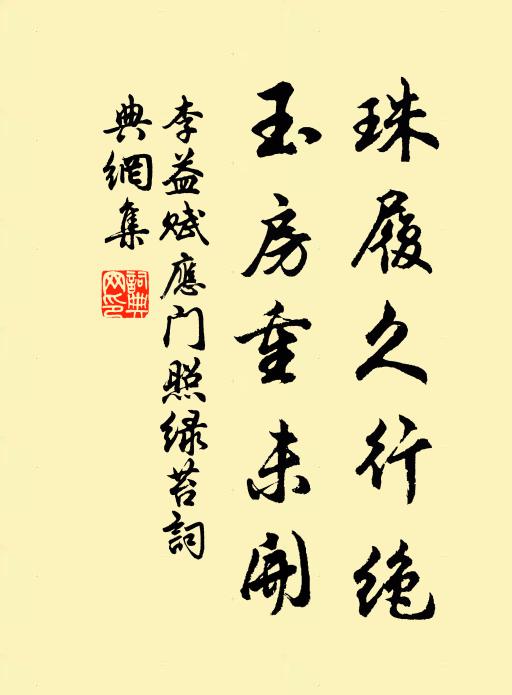 珠履久行绝
玉房重未開
李益赋應门照绿苔詞
典網集
詞典网印